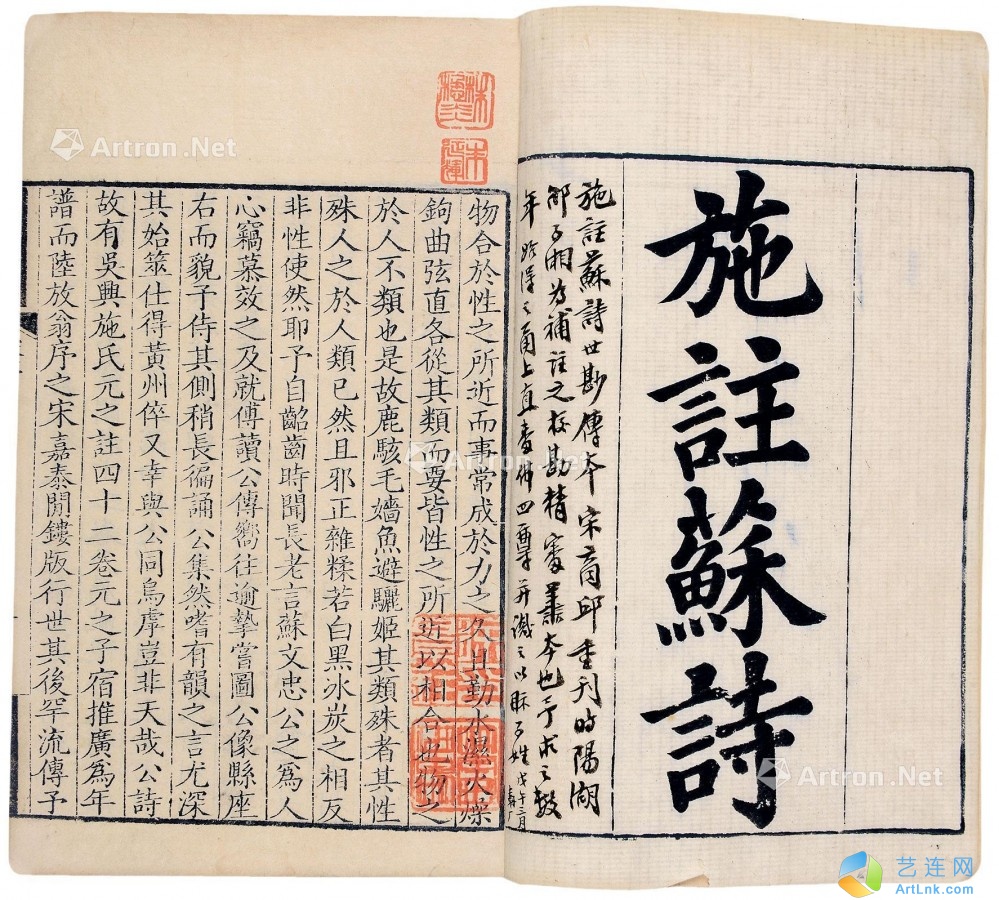 施註蘇詩
施註蘇詩世尠傳本宋商邱重刊時陽湖
邵子湘為補註之校勘精審善本也予求之數
年始得之甬上直番佛四尊并識之以眎子姓戊午三月
物合於性之所近而事常成於力之久且勤水濕火燥
鉤曲弦直各從其類而要皆性之所近以相合也物之
於人不類也是故鹿駭毛嬙魚避驪姬其類殊者其性
殊人之於人類已然且邪正雜糅若白黑冰炭之相反
非性使然耶予自齠齒時聞長老言蘇文忠公之為人
心竊慕效之及就傅讀公傳嚮往逾摯嘗圖公像縣座
右而貌予侍其側稍長徧誦公集然嗜有韻之言尤深
其始筮仕得黃州倅又幸與公同烏虖豈非天哉公詩
故有吳興施氏元之註四十二卷元之子宿推廣為年
譜而陸放翁序之宋嘉泰間鏤版行世其後罕流傳予
Artron.Net
Artron.Net
Artron.Net
Artron.Net
艺连网
ArtLnk.com